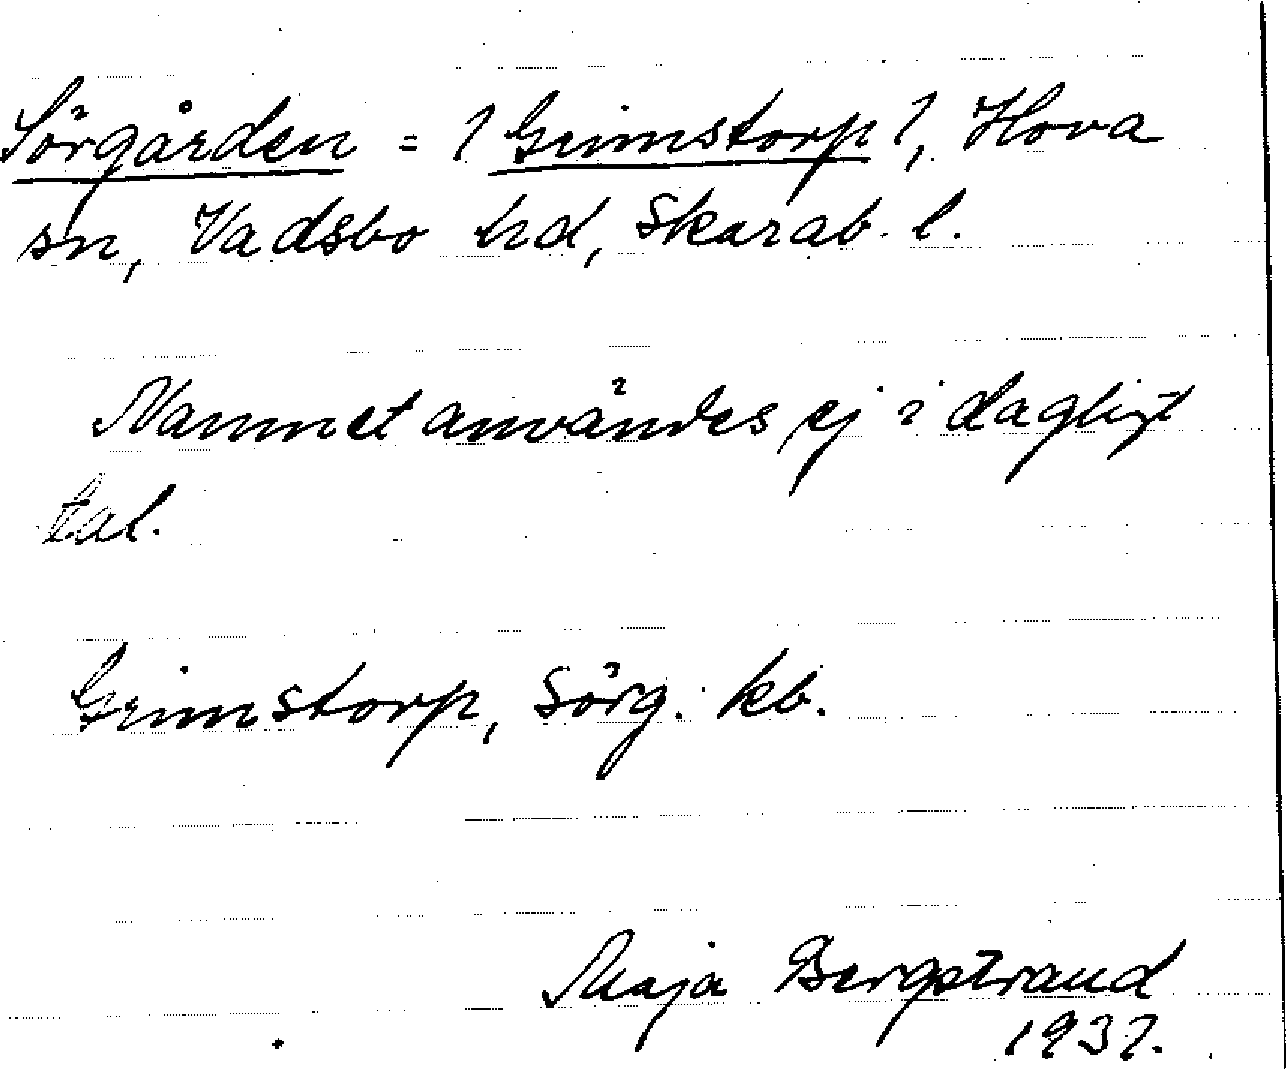 Sörgården = (Grimstorp), Hova
sn, Vadsbo hd, Skarab. l.
Namnet användes ej i dagligt
tal.
Grimstorp, Sörg. kb.
Maja Bergstrand
1937.